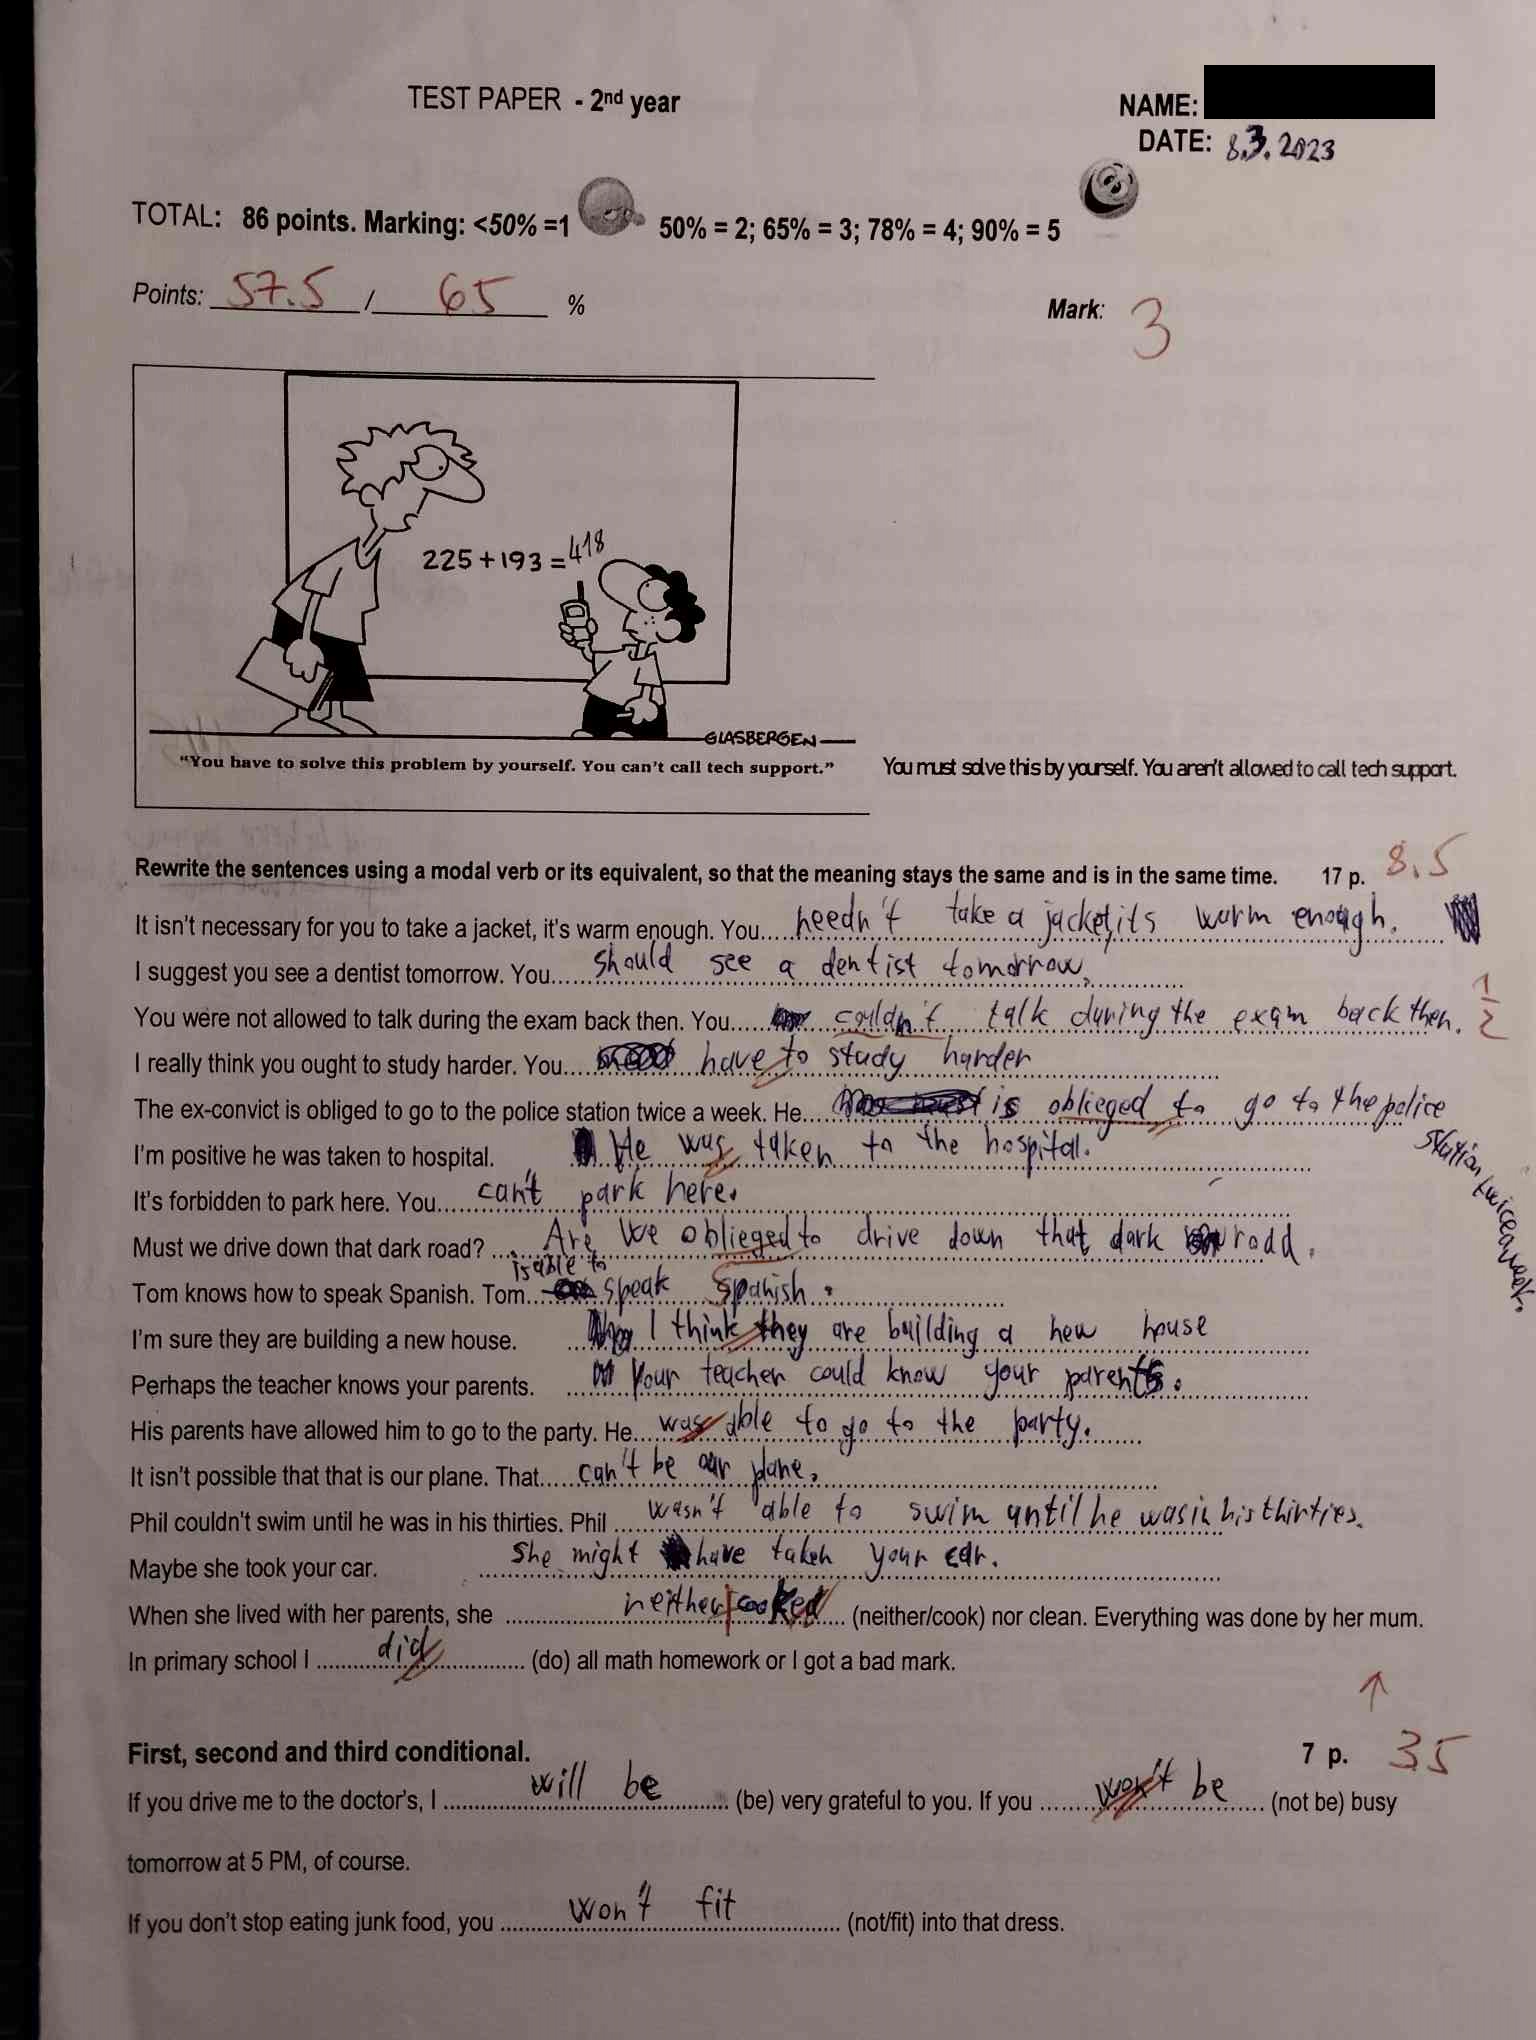 TEST PAPER - 2nd year
NAME:
DATE: 8.3.2023
TOTAL: 86 points. Marking: <50% =1 50% = 2; 65% = 3; 78% = 4; 90% = 5
Points: 57.5 / 65 %
Mark: 3
225+193=418
GLASBERGEN
"You have to solve this problem by yourself. You can't call tech support."
You must solve this by yourself. You aren't allowed to call tech support.
Rewrite the sentences using a modal verb or its equivalent, so that the meaning stays the same and is in the same time. 17 p. 8.5
It isn't necessary for you to take a jacket, it's warm enough. You needn't take a jacket, its warm enough.
I suggest you see a dentist tomorrow. You should see a dentist tomorrow.
You were not allowed to talk during the exam back then. You couldn't talk during the exam back then. 1/2
I really think you ought to study harder. You have to study harder
The ex-convict is obliged to go to the police station twice a week. He is oblieged to go to the police
station twice a week.
I'm positive he was taken to hospital. He was taken to the hospital.
It's forbidden to park here. You can't park here.
Must we drive down that dark road? Are we oblieged to drive down that dark road.
Tom knows how to speak Spanish. Tom is able to speak Spanish.
I'm sure they are building a new house. I think they are building a new house
Perhaps the teacher knows your parents. Your teacher could know your parents.
His parents have allowed him to go to the party. He was able to go to the party.
It isn't possible that that is our plane. That can't be our plane.
Phil couldn't swim until he was in his thirties. Phil wasn't able to swim until he was in his thirties.
Maybe she took your car. She might have taken your car.
When she lived with her parents, she neither cooked (neither/cook) nor clean. Everything was done by her mum.
In primary school I did (do) all math homework or I got a bad mark.
First, second and third conditional. 7 p. 3.5
If you drive me to the doctor's, I will be (be) very grateful to you. If you won't be (not be) busy
tomorrow at 5 PM, of course.
If you don't stop eating junk food, you won't fit (not/fit) into that dress.